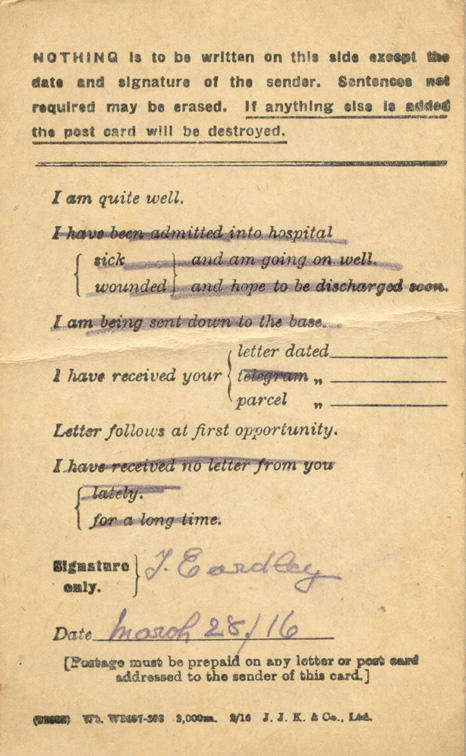 NOTHING is to be written on this side except the
date and signature of the sender. Sentences not
required may be erased. If anything else is added
the post card will be destroyed.
I am quite well.
I have been admitted into hospital
sick and am going on well.
wounded and hope to be discharged soon.
I am being sent down to the base.
letter dated
I have received your telegram „
parcel „
Letter follows at first opportunity.
I have received no letter from you
lately.
for a long time.
Signature only. J. Eardley
Date March 28/16
[Postage must be prepaid on any letter or post card
addressed to the sender of this card.]
3,000m. 2/16 J. J. K. & Co., Ltd.